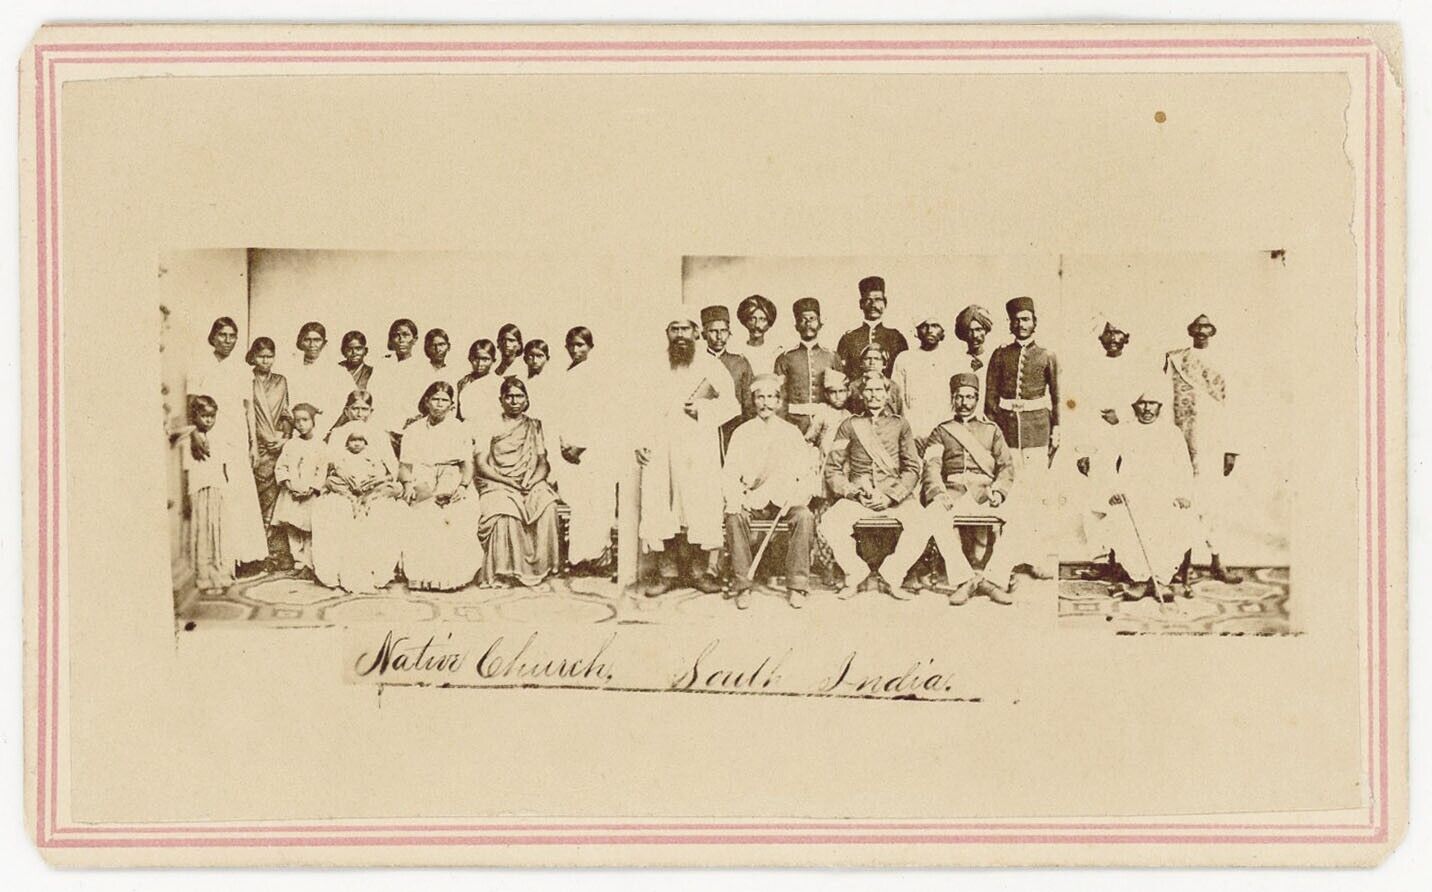 Native Church, South India.